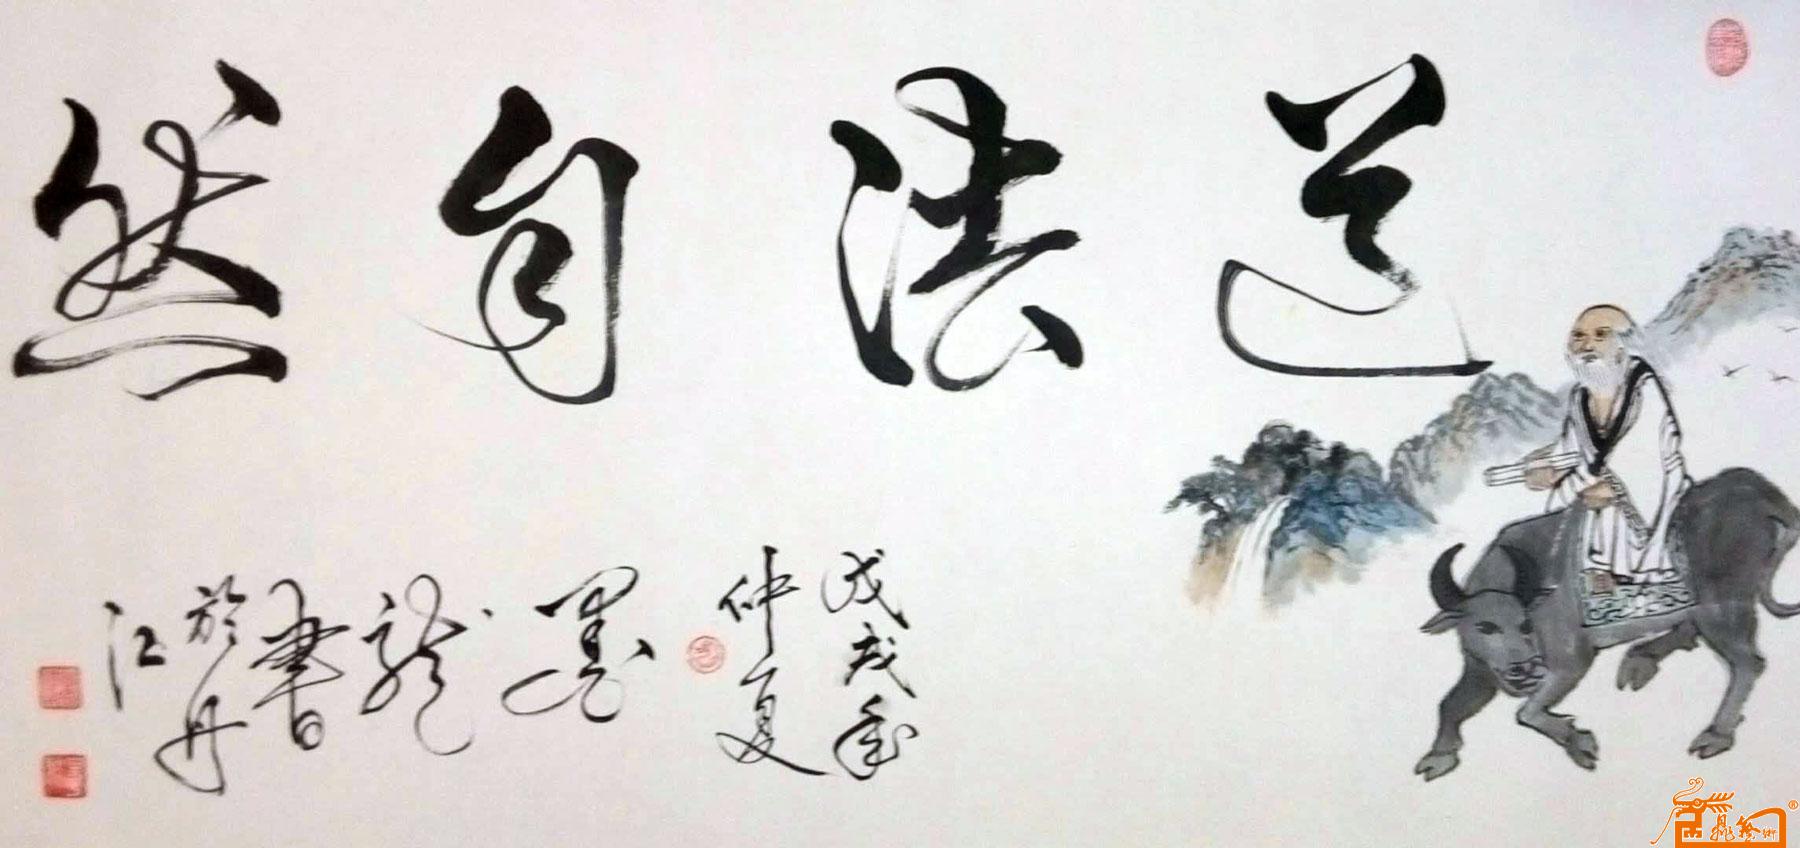 道法自然
戊戌年
仲夏
墨龙書
於丹
江